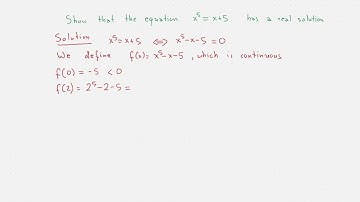 Show that the equation x⁵ = x+5 has a real solution
Solution x⁵ = x+5 ⟺ x⁵-x-5 = 0
We define f(x) = x⁵-x-5, which is continuous
f(0) = -5 < 0
f(2) = 2⁵-2-5 =